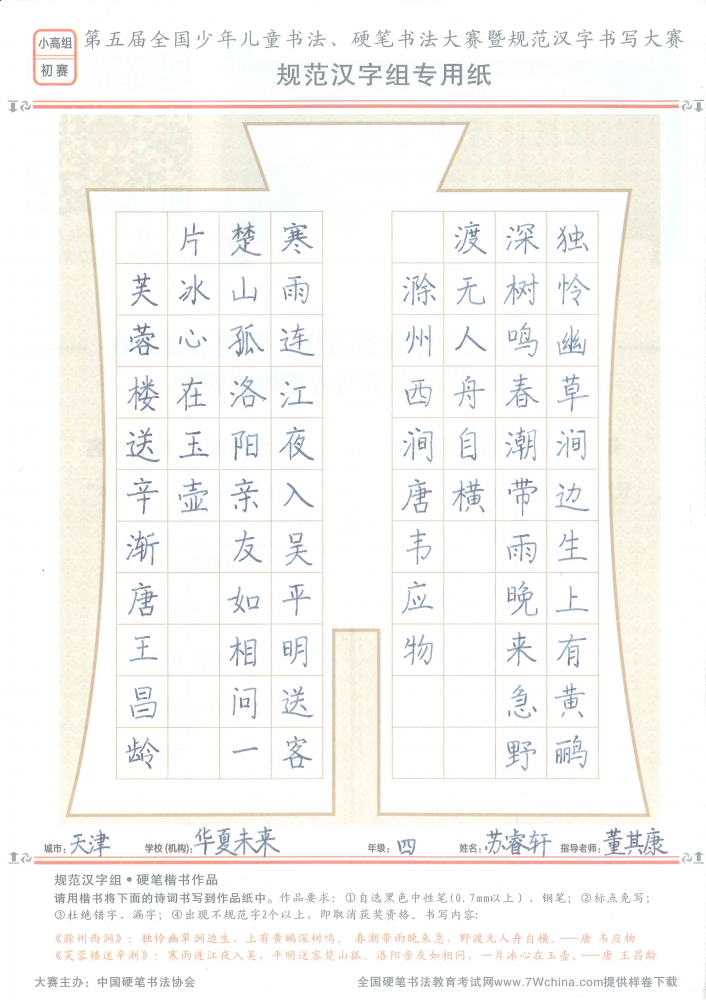 小高组
初赛
第五届全国少年儿童书法、硬笔书法大赛暨规范汉字书写大赛
规范汉字组专用纸
独怜幽草涧边生上有黄鹂
深树鸣春潮带雨晚来急野
渡无人舟自横
滁州西涧唐韦应物
寒雨连江夜入吴平明送客
楚山孤洛阳亲友如相问一
片冰心在玉壶
芙蓉楼送辛渐唐王昌龄
城市:天津 学校(机构):华夏未来 年级:四 姓名:苏睿轩 指导老师:董其康
规范汉字组·硬笔楷书作品
请用楷书将下面的诗词书写到作品纸中。作品要求:①自选黑色中性笔(0.7mm以上)、钢笔;②标点免写;
③杜绝错字、漏字;④出现不规范字2个以上,即取消获奖资格。书写内容:
《滁州西涧》:独怜幽草涧边生,上有黄鹂深树鸣。春潮带雨晚来急,野渡无人舟自横。——唐 韦应物
《芙蓉楼送辛渐》:寒雨连江夜入吴,平明送客楚山孤。洛阳亲友如相问,一片冰心在玉壶。——唐 王昌龄
大赛主办:中国硬笔书法协会
全国硬笔书法教育考试网www.7Wchina.com提供样卷下载